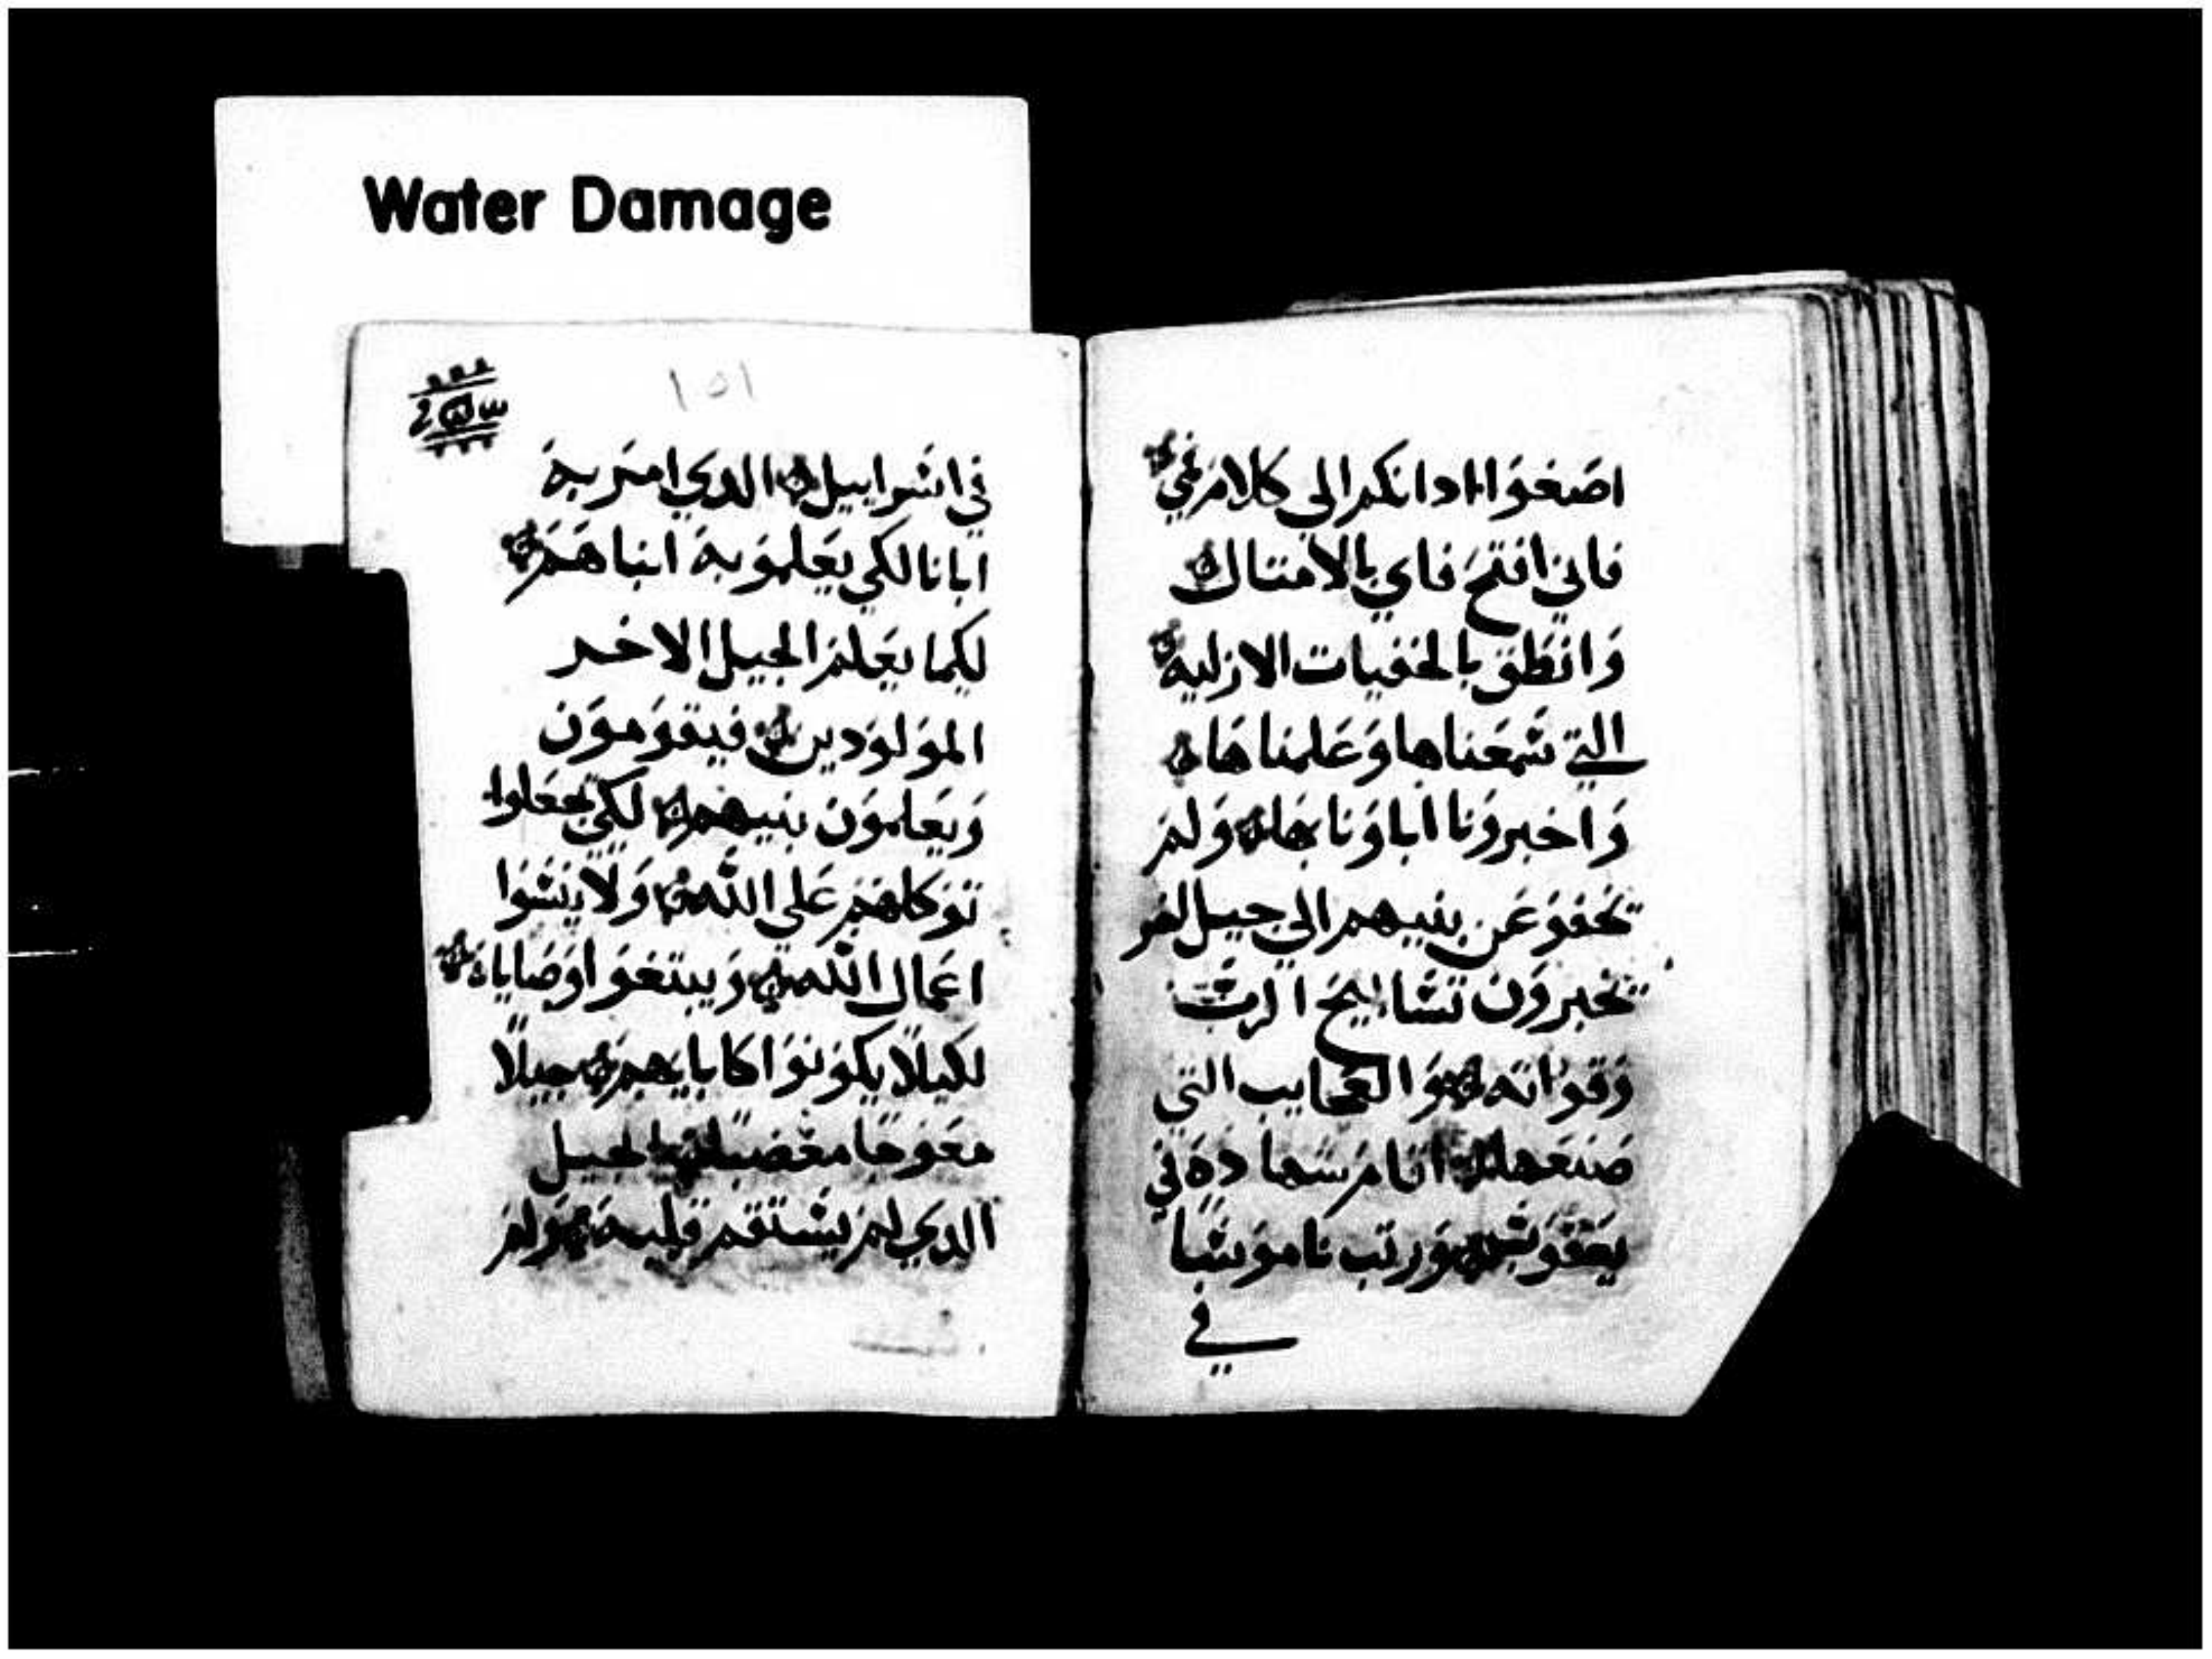 Water Damage
اصغوا ادانكم الى كلام في
فاني افتح فاي بالامتال
وانطق بالخفيات الازلية
التي سمعناها وعلمناها
واخبرونا اباونا بها ولم
تخفو عن بنيهم الي جيل اخر
تخبرون تسابيح الرب
وقواته والعجايب التي
صنعها اقام شهاده في
يعقوب ورتب ناموسا
في
١٥١
في اسراييل الدي امر به
ابانا لكي يعلمو به ابناهم
لكيما يعلم الجيل الاخر
المولودين فيقومون
ويعلمون بنيهم لكي يجعلوا
توكلهم علي الله ولا ينسوا
اعمال الله ويبتغوا وصاياه
لكيلا يكونوا كابايهم جيلا
معوجا مغضبا الجيل
الدي لم يستقم قلبه ولم